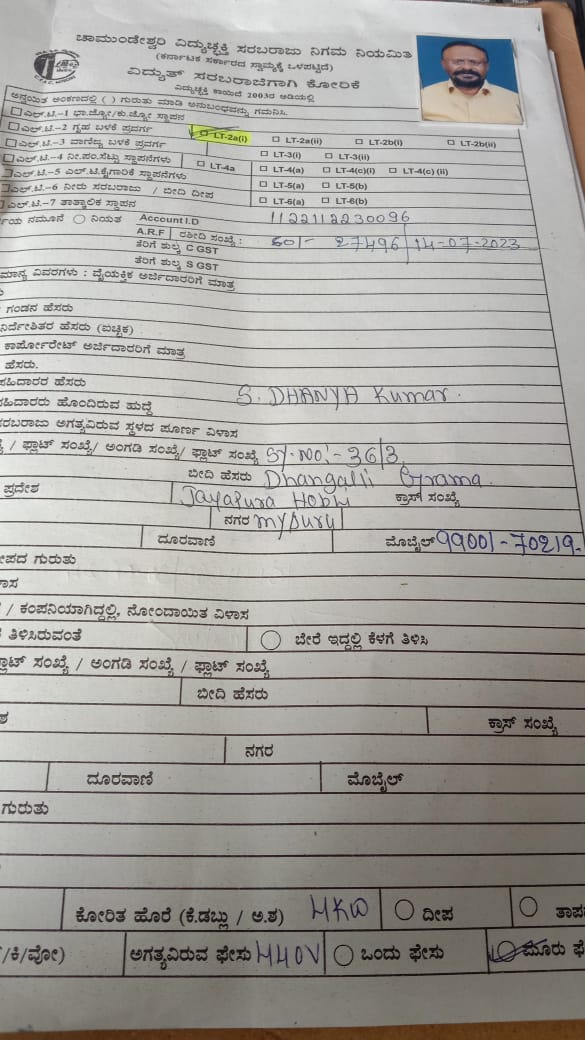 ಚಾಮುಂಡೇಶ್ವರಿ ವಿದ್ಯುಚ್ಛಕ್ತಿ ಸರಬರಾಜು ನಿಗಮ ನಿಯಮಿತ
(ಕರ್ನಾಟಕ ಸರ್ಕಾರದ ಸ್ವಾಮ್ಯಕ್ಕೆ ಒಳಪಟ್ಟಿದೆ)
ವಿದ್ಯುತ್ ಸರಬರಾಜಿಗಾಗಿ ಕೋರಿಕೆ
ವಿದ್ಯುಚ್ಛಕ್ತಿ ಕಾಯಿದೆ 2003ರ ಅಡಿಯಲ್ಲಿ
ಅನ್ವಯಿತ ಅಂಕಣದಲ್ಲಿ ( ) ಗುರುತು ಮಾಡಿ ಅನುಬಂಧವನ್ನು ಗಮನಿಸಿ.
ಎಲ್.ಟಿ.-1 ಭಾ.ಜ್ಯೋ/ಕು.ಜ್ಯೋ ಸ್ಥಾಪನ
ಎಲ್.ಟಿ.-2 ಗೃಹ ಬಳಕೆ ಪ್ರವರ್ಗ LT-2a(i) LT-2a(ii) LT-2b(i) LT-2b(ii)
ಎಲ್.ಟಿ.-3 ವಾಣಿಜ್ಯ ಬಳಕೆ ಪ್ರವರ್ಗ LT-3(i) LT-3(ii)
ಎಲ್.ಟಿ.-4 ನೀ.ಪಂ.ಸೆಟ್ಟು ಸ್ಥಾಪನೆಗಳು LT-4a LT-4(a) LT-4(c)(i) LT-4(c) (ii)
ಎಲ್.ಟಿ.-5 ಎಲ್.ಟಿ.ಕೈಗಾರಿಕೆ ಸ್ಥಾಪನೆಗಳು LT-5(a) LT-5(b)
ಎಲ್.ಟಿ.-6 ನೀರು ಸರಬರಾಜು / ಬೀದಿ ದೀಪ LT-6(a) LT-6(b)
ಎಲ್.ಟಿ.-7 ತಾತ್ಕಾಲಿಕ ಸ್ಥಾಪನ
ನಮೂನೆ ನಿಯತ Account I.D 1122112230096
A.R.F ರಶೀದಿ ಸಂಖ್ಯೆ : 60/- 27496/14-07-2023
ತೆರಿಗೆ ಶುಲ್ಕ C GST
ತೆರಿಗೆ ಶುಲ್ಕ S GST
ವಿವರಗಳು : ವೈಯಕ್ತಿಕ ಅರ್ಜಿದಾರರಿಗೆ ಮಾತ್ರ
ಗಂಡನ ಹೆಸರು
ಹೆಸರು (ಐಚ್ಛಿಕ)
ಕಾರ್ಪೋರೇಟ್ ಅರ್ಜಿದಾರರಿಗೆ ಮಾತ್ರ
ಹೆಸರು.
ಹೆಸರು S. DHANYA Kumar.
ಹೊಂದಿರುವ ಹುದ್ದೆ
ಅಗತ್ಯವಿರುವ ಸ್ಥಳದ ಪೂರ್ಣ ವಿಳಾಸ
/ ಫ್ಲಾಟ್ ಸಂಖ್ಯೆ/ ಅಂಗಡಿ ಸಂಖ್ಯೆ/ ಫ್ಲಾಟ್ ಸಂಖ್ಯೆ Sy.No:-36/3
ಬೀದಿ ಹೆಸರು Dhangalli Grama.
ಪ್ರದೇಶ Jayapura Hobli ಕ್ರಾಸ್ ಸಂಖ್ಯೆ
ನಗರ mysuru
ದೂರವಾಣಿ ಮೊಬೈಲ್ 99001-70219-
ಗುರುತು
/ ಕಂಪನಿಯಾಗಿದ್ದಲ್ಲಿ, ನೋಂದಾಯಿತ ವಿಳಾಸ
ತಿಳಿಸಿರುವಂತೆ ಬೇರೆ ಇದ್ದಲ್ಲಿ ಕೆಳಗೆ ತಿಳಿಸಿ
ಸಂಖ್ಯೆ / ಅಂಗಡಿ ಸಂಖ್ಯೆ / ಫ್ಲಾಟ್ ಸಂಖ್ಯೆ
ಬೀದಿ ಹೆಸರು
ಕ್ರಾಸ್ ಸಂಖ್ಯೆ
ನಗರ
ದೂರವಾಣಿ ಮೊಬೈಲ್
ಗುರುತು
ಕೋರಿತ ಹೊರೆ (ಕೆ.ಡಬ್ಲು / ಅ.ಶ) 4KW ದೀಪ
ಅಗತ್ಯವಿರುವ ಫೇಸು 440V ಒಂದು ಫೇಸು ಮೂರು